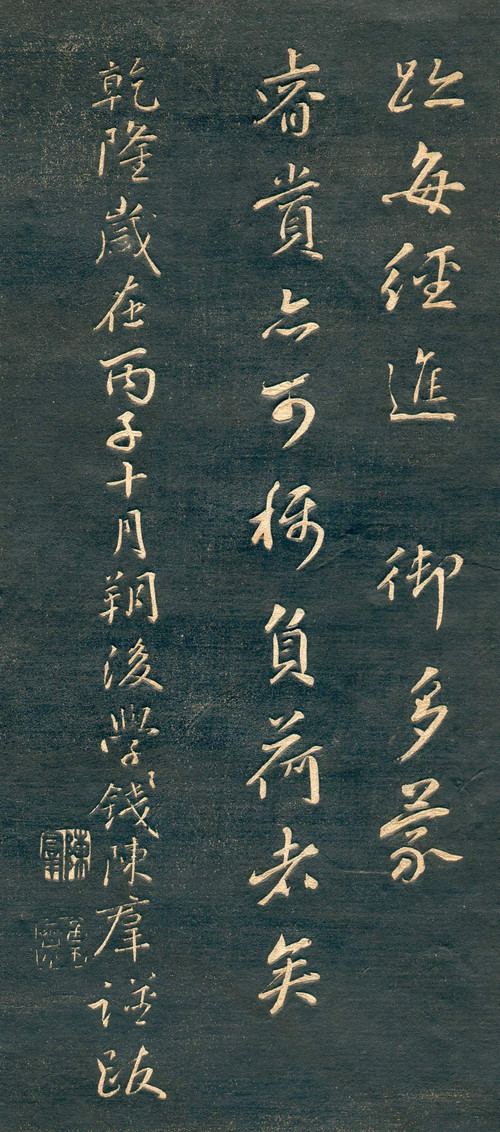 跡每經進 御多蒙
睿賞亦可稱負荷者矣
乾隆歲在丙子十月朔後學錢陳羣謹跋
陳羣